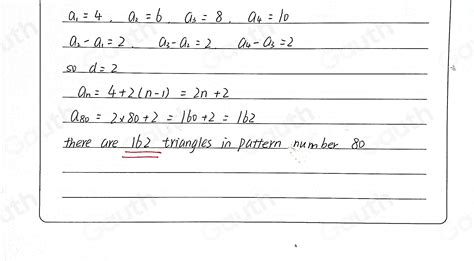 a₁ = 4 . a₂ = 6 . a₃ = 8 . a₄ = 10
a₂ - a₁ = 2 . a₃ - a₂ = 2 . a₄ - a₃ = 2
so d = 2
aₙ = 4 + 2(n-1) = 2n + 2
a₈₀ = 2×80 + 2 = 160 + 2 = 162
there are 162 triangles in pattern number 80
Gauth